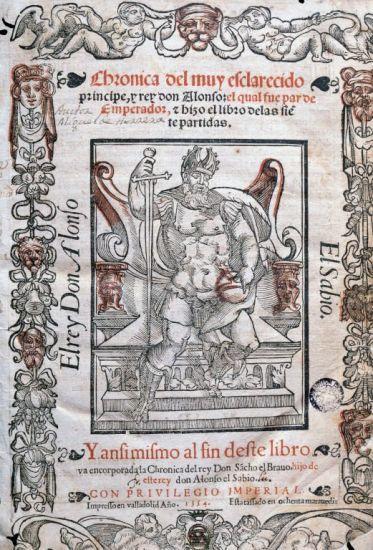 Chronica del muy esclarecido
principe, y rey don Alonso: el qual fue par de
Emperador, & hizo el libro delas sie
te partidas.
El rey Don Alonso
El Sabio.
Y ansimismo al fin deste libro
va encorporada la Chronica del rey Don Sãcho el Brauo, hijo de
este rey don Alonso el Sabio.
CON PRIVILEGIO IMPERIAL.
Impresso en valladolid Año. 1554. Esta tassado en ochenta marauedis